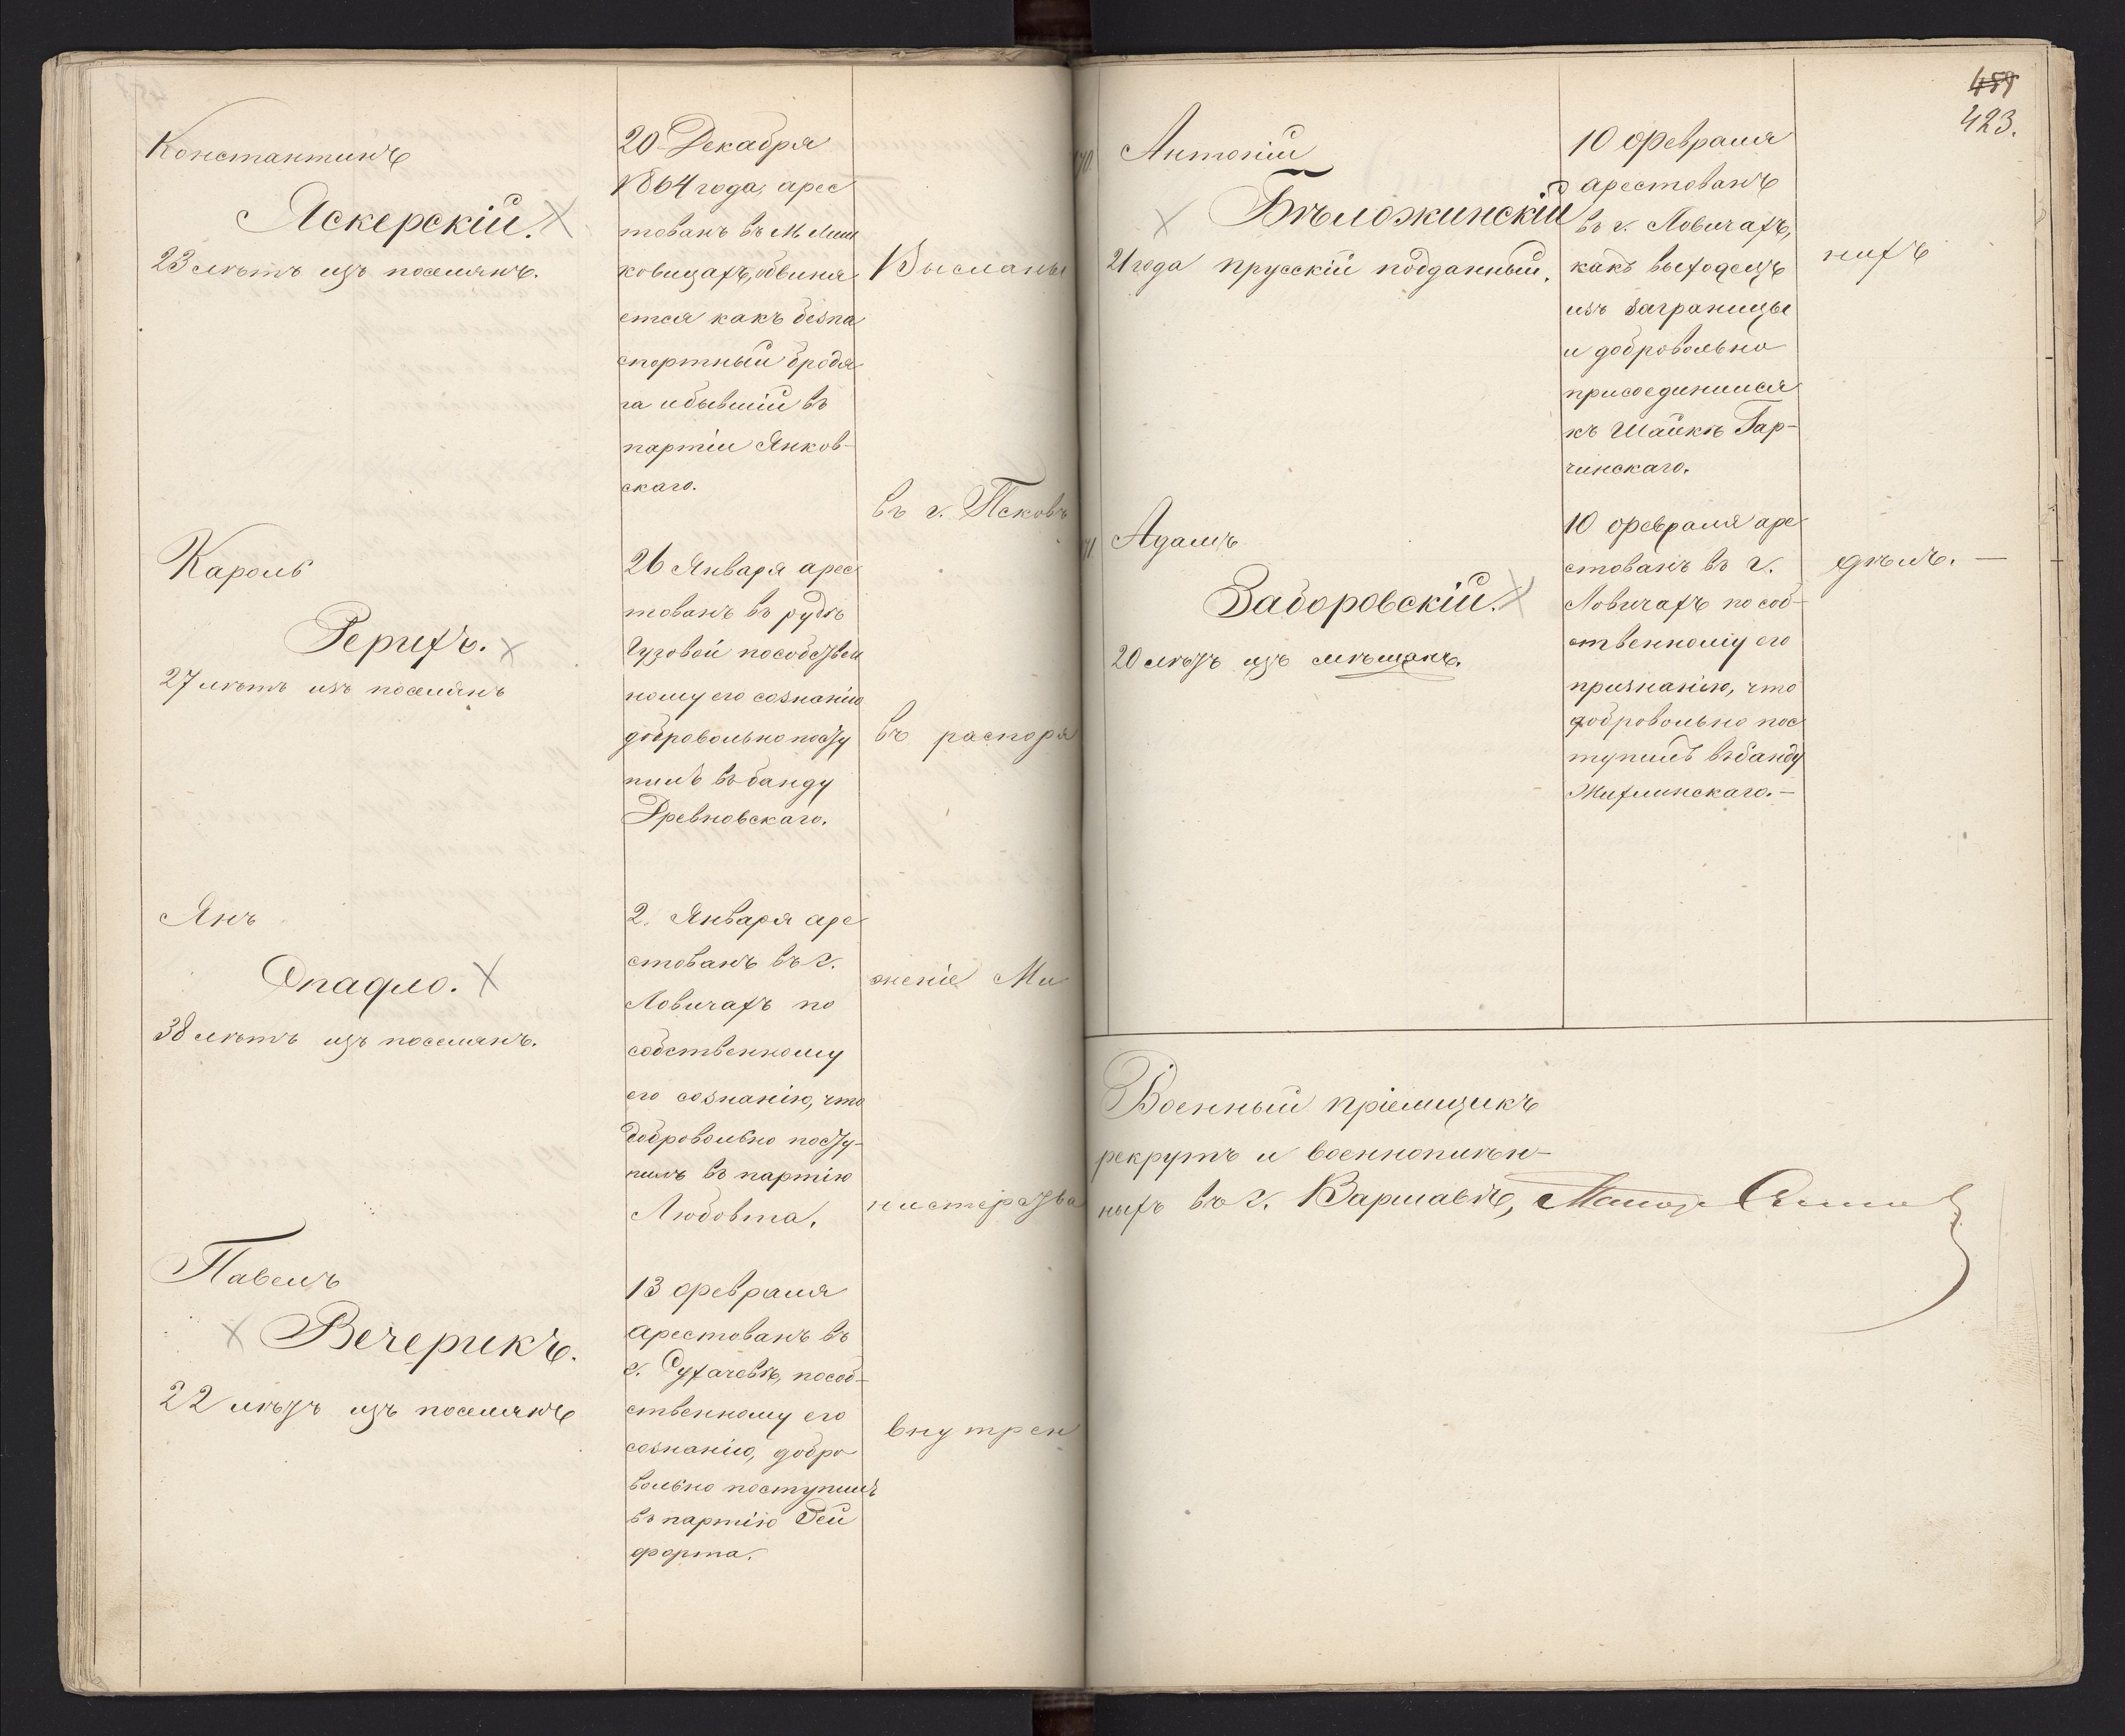 Константинъ
Яскерскій.
23 лѣтъ изъ поселянъ.
20 Декабря
1864 года, арес
тованъ въ м.
ковицахъ, обвиня
ется какъ безпа
спортный бродя
га и бывшій въ
партіи Янков-
скаго.
Высланы
въ г. Псковъ
Кароль
Рерихъ.
27 лѣтъ изъ поселянъ
26 Января арес
тованъ въ рудѣ
Гузовой по собствен
ному его сознанію
добровольно посту
пилъ въ банду
Древновскаго.
въ распоря
Янъ
Опадло.
38 лѣтъ изъ поселянъ.
2. Января аре
стованъ въ г.
Ловичахъ по
собственному
его сознанію, что
добровольно посту-
пилъ въ партію
Любовта.
женіе Ми
нистерства
Павелъ
Вечерикъ.
22 лѣтъ изъ поселянъ
13 февраля
арестованъ въ
с. Сухачевѣ, по соб-
ственному его
сознанію, добро
вольно поступилъ
въ партію Рей
форта.
внутрен
459
423.
70.
Антоній
Бѣложинскій
21 года прусскій подданный.
10 Февраля
арестованъ
въ г. Ловичахъ,
какъ выходецъ
изъ заграницы
и добровольно
присоединился
къ Шайкѣ Гар-
чинскаго.
нихъ
71.
Адамъ
Заборовскій.
20 лѣтъ изъ мѣщанъ.
10 февраля аре
стованъ въ г.
Ловичахъ по соб-
ственному его
признанію, что
добровольно пос
тупилъ въ банду
Жихлинскаго.—
дѣлъ. —
Военный пріемщикъ
рекрутъ и военноплѣн-
ныхъ въ г. Варшавѣ, Маіоръ